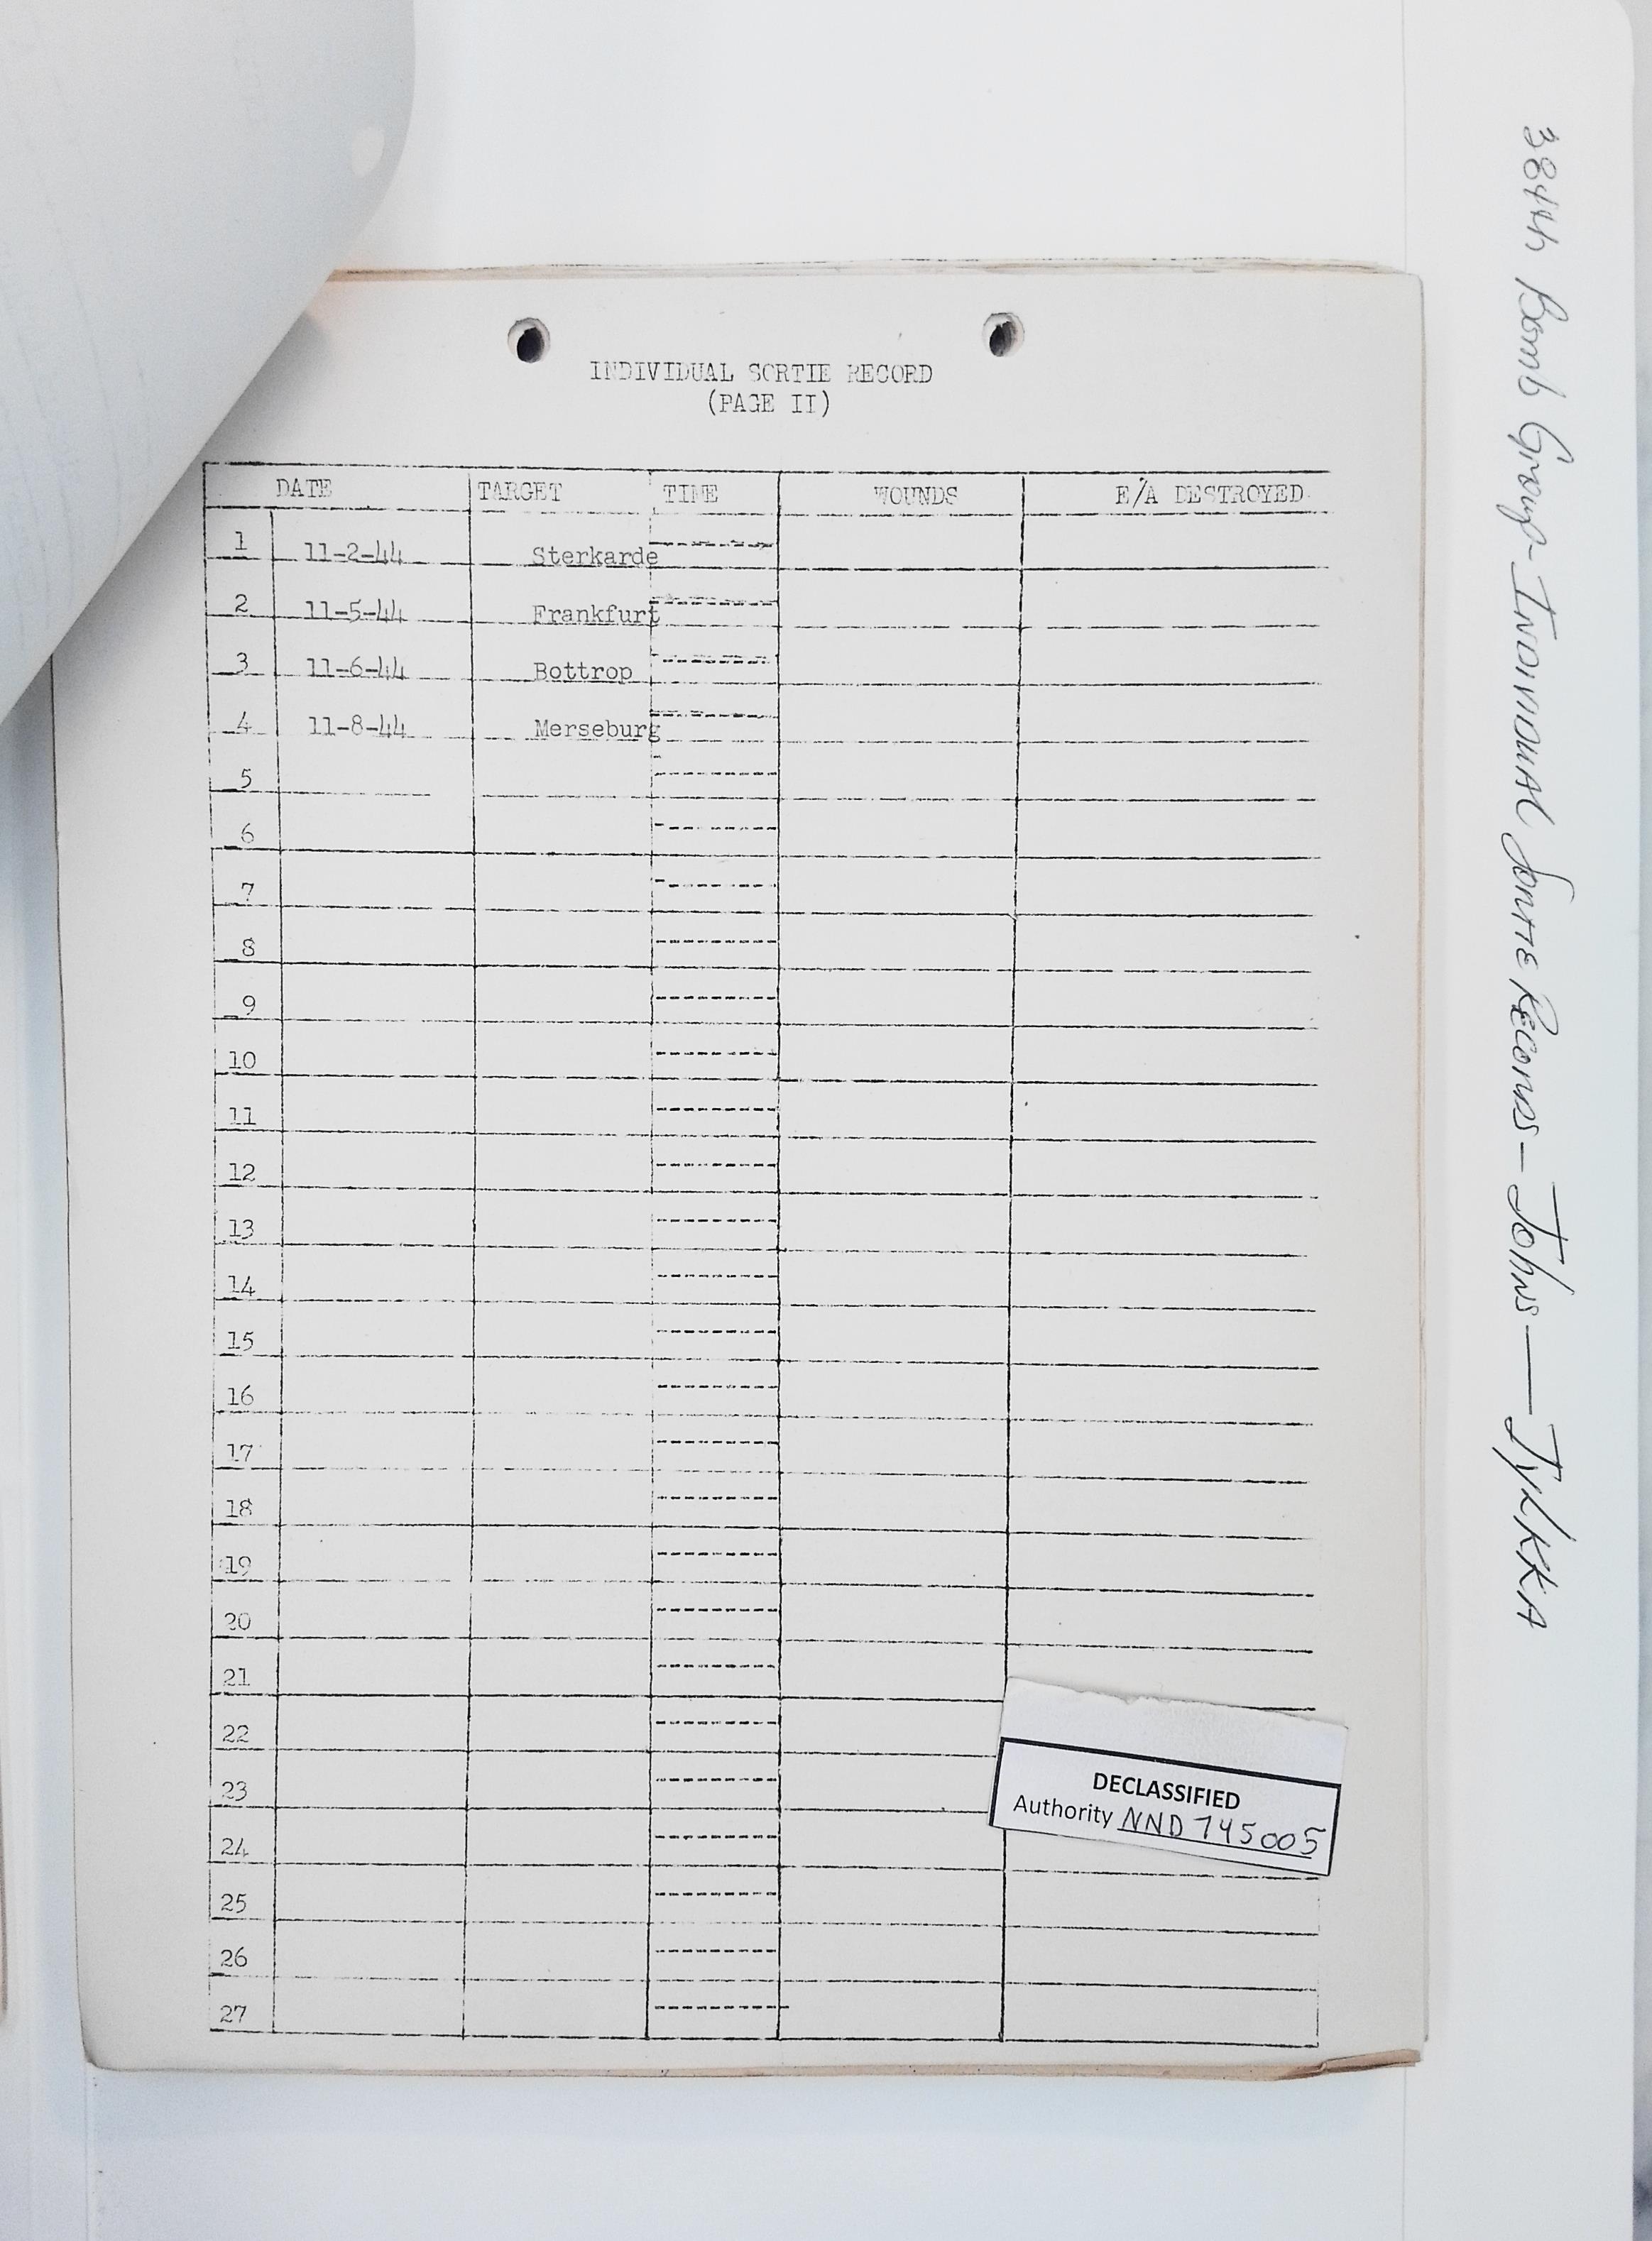 INDIVIDUAL SORTIE RECORD
(PAGE II)
DATE TARGET TIME WOUNDS E/A DESTROYED
1 11-2-44 Sterkarde
2 11-5-44 Frankfurt
3 11-6-44 Bottrop
4 11-8-44 Merseburg
5
6
7
8
9
10
11
12
13
14
15
16
17
18
19
20
21
22
23
24
25
26
27
DECLASSIFIED
Authority NND 745005
384th Bomb Group - INDIVIDUAL Sortie Records - Johns - TYLKKA